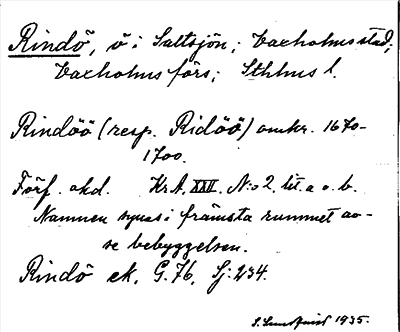 Rindö, ö i Saltsjön; Vaxholms stad;
Vaxholms förs; Sthlms l.
Rindöö (resp. Ridöö) omkr. 1670-
1700.
Förf. okd. Kr.A. XXII. N:o 2. lit. a o. b.
Namnen synas i främsta rummet av-
se bebyggelsen.
Rindö ek. G. 76, Sj: 234.
S. Lundqvist 1935.